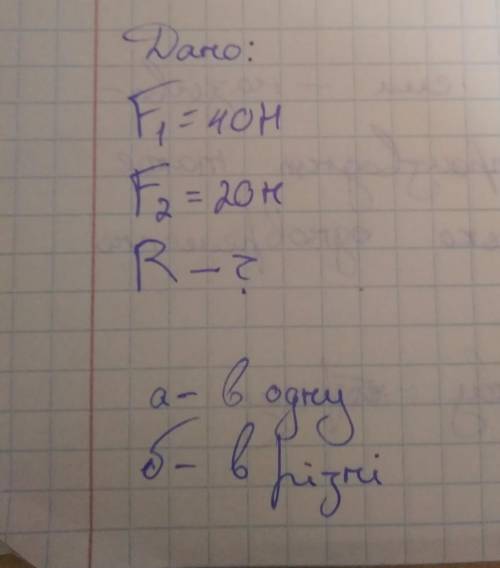 Дано:
F₁ = 40Н
F₂ = 20Н
R – ?
а – в одну
б – в різні